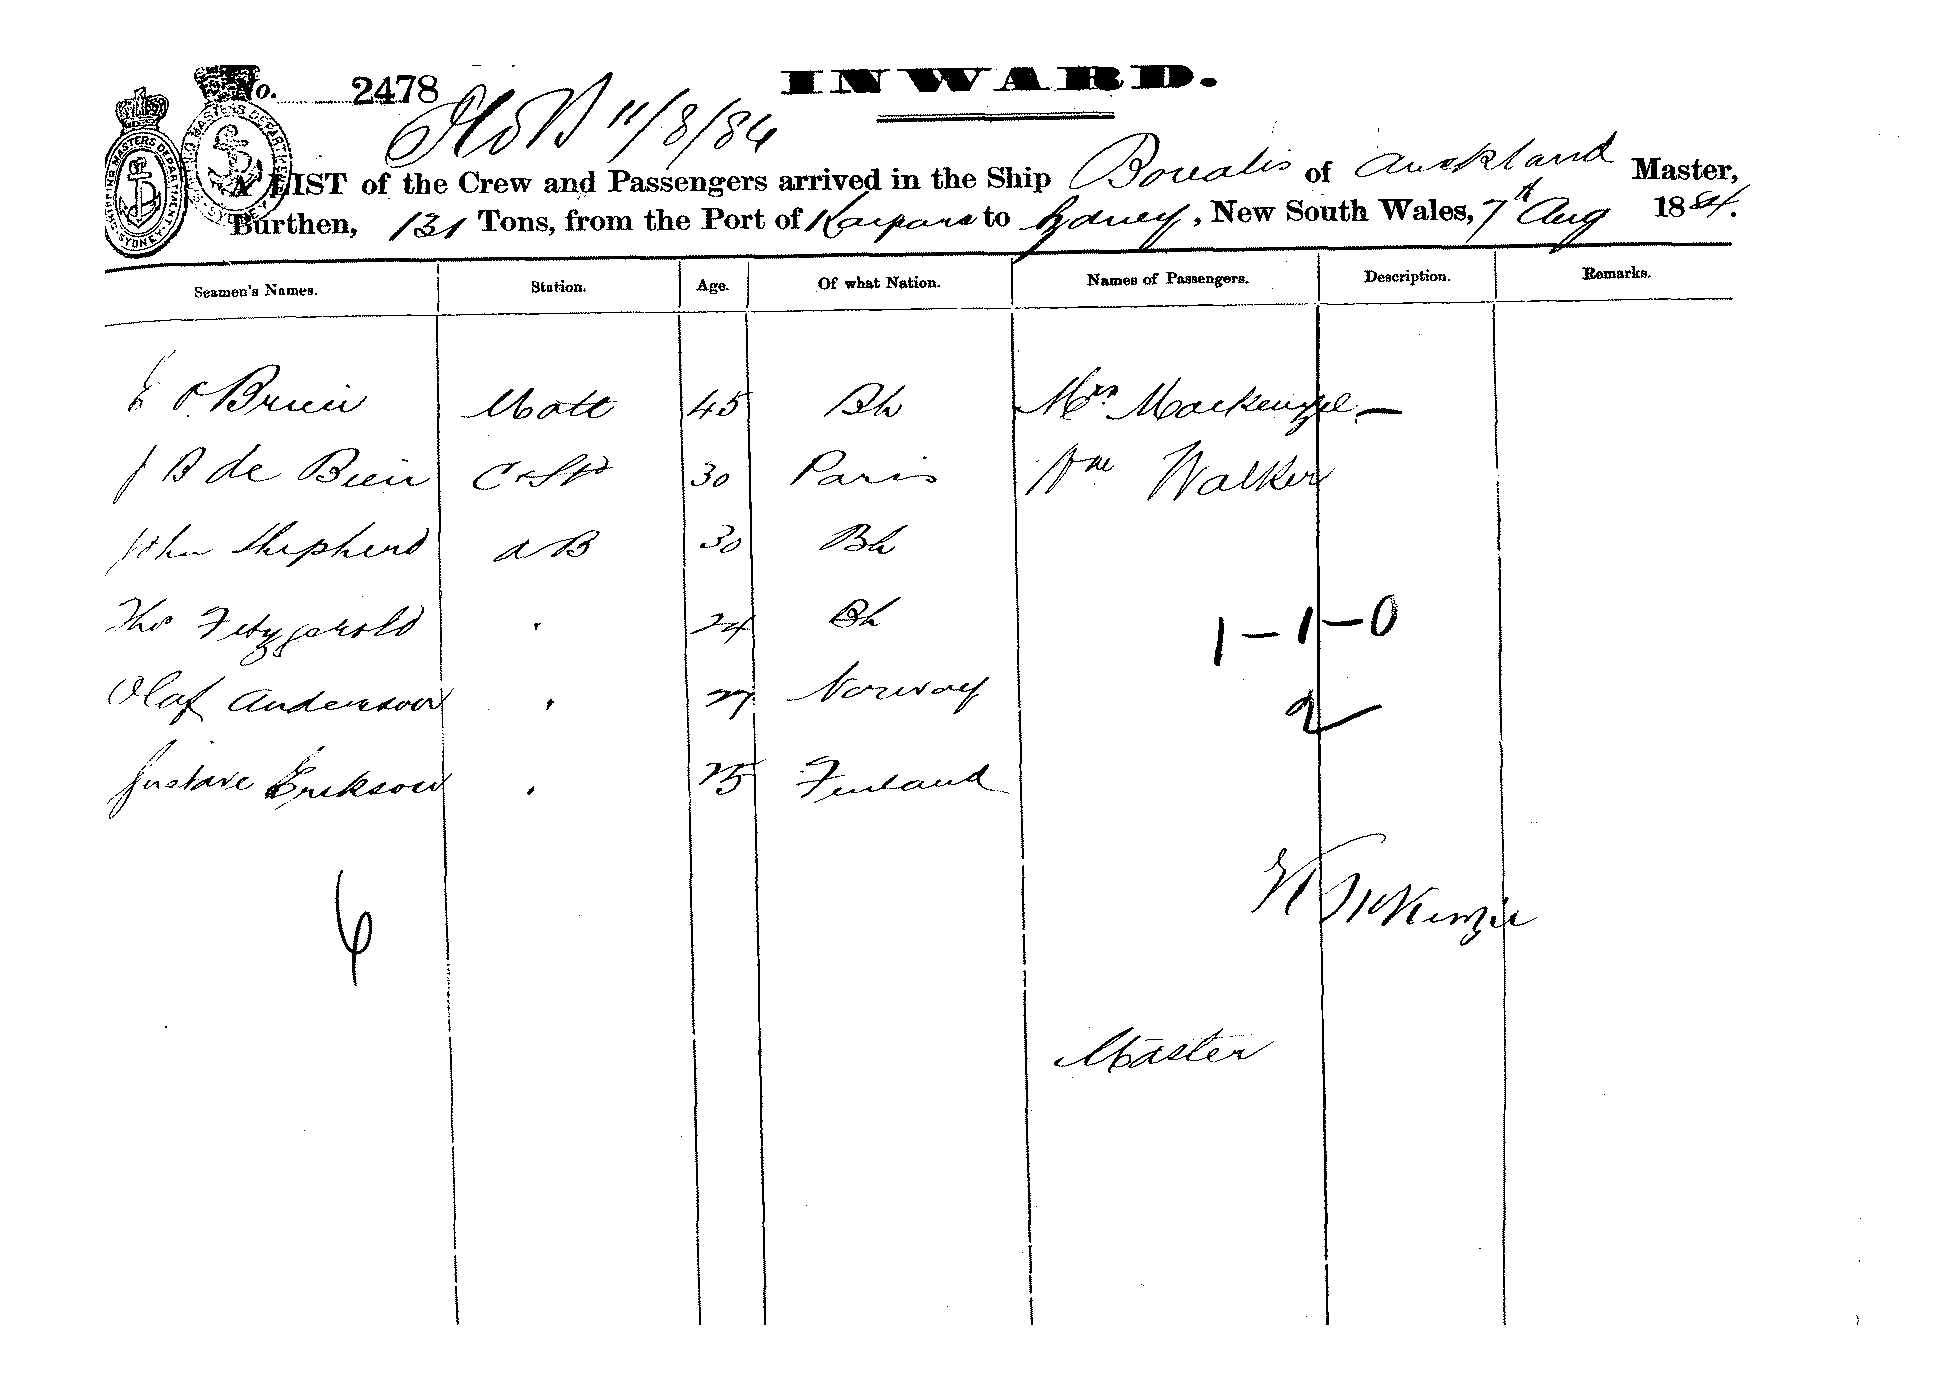 No. 2478
INWARD.
11/8/84
A LIST of the Crew and Passengers arrived in the Ship Borealis of Auckland Master,
Burthen, 131 Tons, from the Port of Kaipara to Sydney, New South Wales, 7th Aug 1884.
SHIPPING MASTERS DEPARTMENT SYDNEY
Seamen's Names. Station. Age. Of what Nation. Names of Passengers. Description. Remarks.
E O'Brien Mate 45 Bh Mrs Mackenzie —
J B de Bien C & Std 30 Paris Wm Walker
John Shepherd AB 30 Bh
Thos Fitzgerald " 24 Bh
Olaf Anderson " 27 Norway
Gustave Erikson " 25 Finland
1 - 1 - 0
2
6
McKenzie
Master